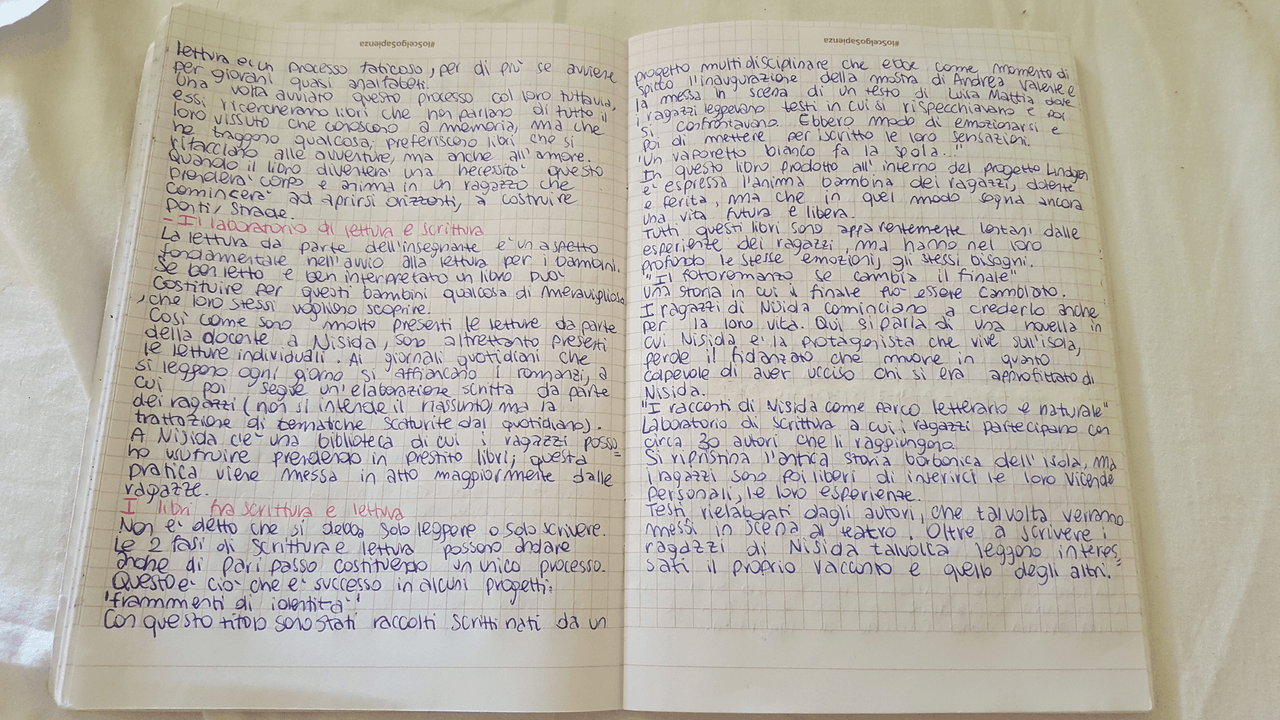 #IoScelgoSapienza
lettura è un processo faticoso, per di più se avviene
per giovani quasi analfabeti.
Una volta avviato questo processo col loro tuttavia,
essi ricercheranno libri che non parlano di tutto il
loro vissuto che conoscono a memoria, ma che
ne traggono qualcosa; preferiscono libri che si
rifacciano alle avventure, ma anche all'amore.
Quando il libro diventerà una necessità questo
prenderà corpo e anima in un ragazzo che
comincerà ad aprirsi orizzonti, a costruire
ponti/strade.
- Il laboratorio di lettura e scrittura
La lettura da parte dell'insegnante è un aspetto
fondamentale nell'avvio alla lettura per i bambini.
Se ben letto e ben interpretato un libro può
costituire per questi bambini qualcosa di meraviglioso
, che loro stessi vogliono scoprire.
Così come sono molto presenti le letture da parte
della docente a Nisida, sono altrettanto presenti
le letture individuali. Ai giornali quotidiani che
si leggono ogni giorno si affiancano i romanzi, a
cui poi segue un'elaborazione scritta da parte
dei ragazzi (non si intende il riassunto) ma la
trattazione di tematiche scaturite dal quotidiano).
A Nisida c'è una biblioteca di cui i ragazzi posso=
no usufruire prendendo in prestito libri; questa
pratica viene messa in atto maggiormente dalle
ragazze.
I libri fra scrittura e lettura
Non è detto che si debba solo leggere o solo scrivere.
Le 2 fasi di scrittura e lettura possono andare
anche di pari passo costituendo un unico processo.
Questo è ciò che è successo in alcuni progetti:
"frammenti di identità:"
Con questo titolo sono stati raccolti scritti nati da un
#IoScelgoSapienza
progetto multidisciplinare che ebbe come momento di
l'inaugurazione della mostra di Andrea Valente e
la messa in scena di un testo di Luisa Mattia dove
i ragazzi leggevano testi in cui si rispecchiavano e poi
si confrontavano. Ebbero modo di emozionarsi e
poi di mettere per iscritto le loro sensazioni.
"Un vaporetto bianco fa la spola..."
In questo libro prodotto all'interno del progetto Lindgren
è espressa l'anima bambina dei ragazzi, dolente
e ferita, ma che in quel modo sogna ancora
una vita futura e libera.
Tutti questi libri sono apparentemente lontani dalle
esperienze dei ragazzi, ma hanno nel loro
profondo le stesse emozioni, gli stessi bisogni.
"Il fotoromanzo se cambia il finale"
Una storia in cui il finale può essere cambiato.
I ragazzi di Nisida cominciano a crederlo anche
per la loro vita. Qui si parla di una novella in
cui Nisida è la protagonista che vive sull'isola,
perde il fidanzato che muore in quanto
colpevole di aver ucciso chi si era approfittato di
Nisida.
"I racconti di Nisida come parco letterario e naturale"
Laboratorio di scrittura a cui i ragazzi partecipano con
circa 30 autori che li raggiungono.
Si ripristina l'antica storia borbonica dell'isola, ma
i ragazzi sono poi liberi di inserirci le loro vicende
personali, le loro esperienze.
Testi rielaborati dagli autori, che talvolta verranno
messi in scena al teatro. Oltre a scrivere i
ragazzi di Nisida talvolta leggono interes=
sati il proprio racconto e quello degli altri.